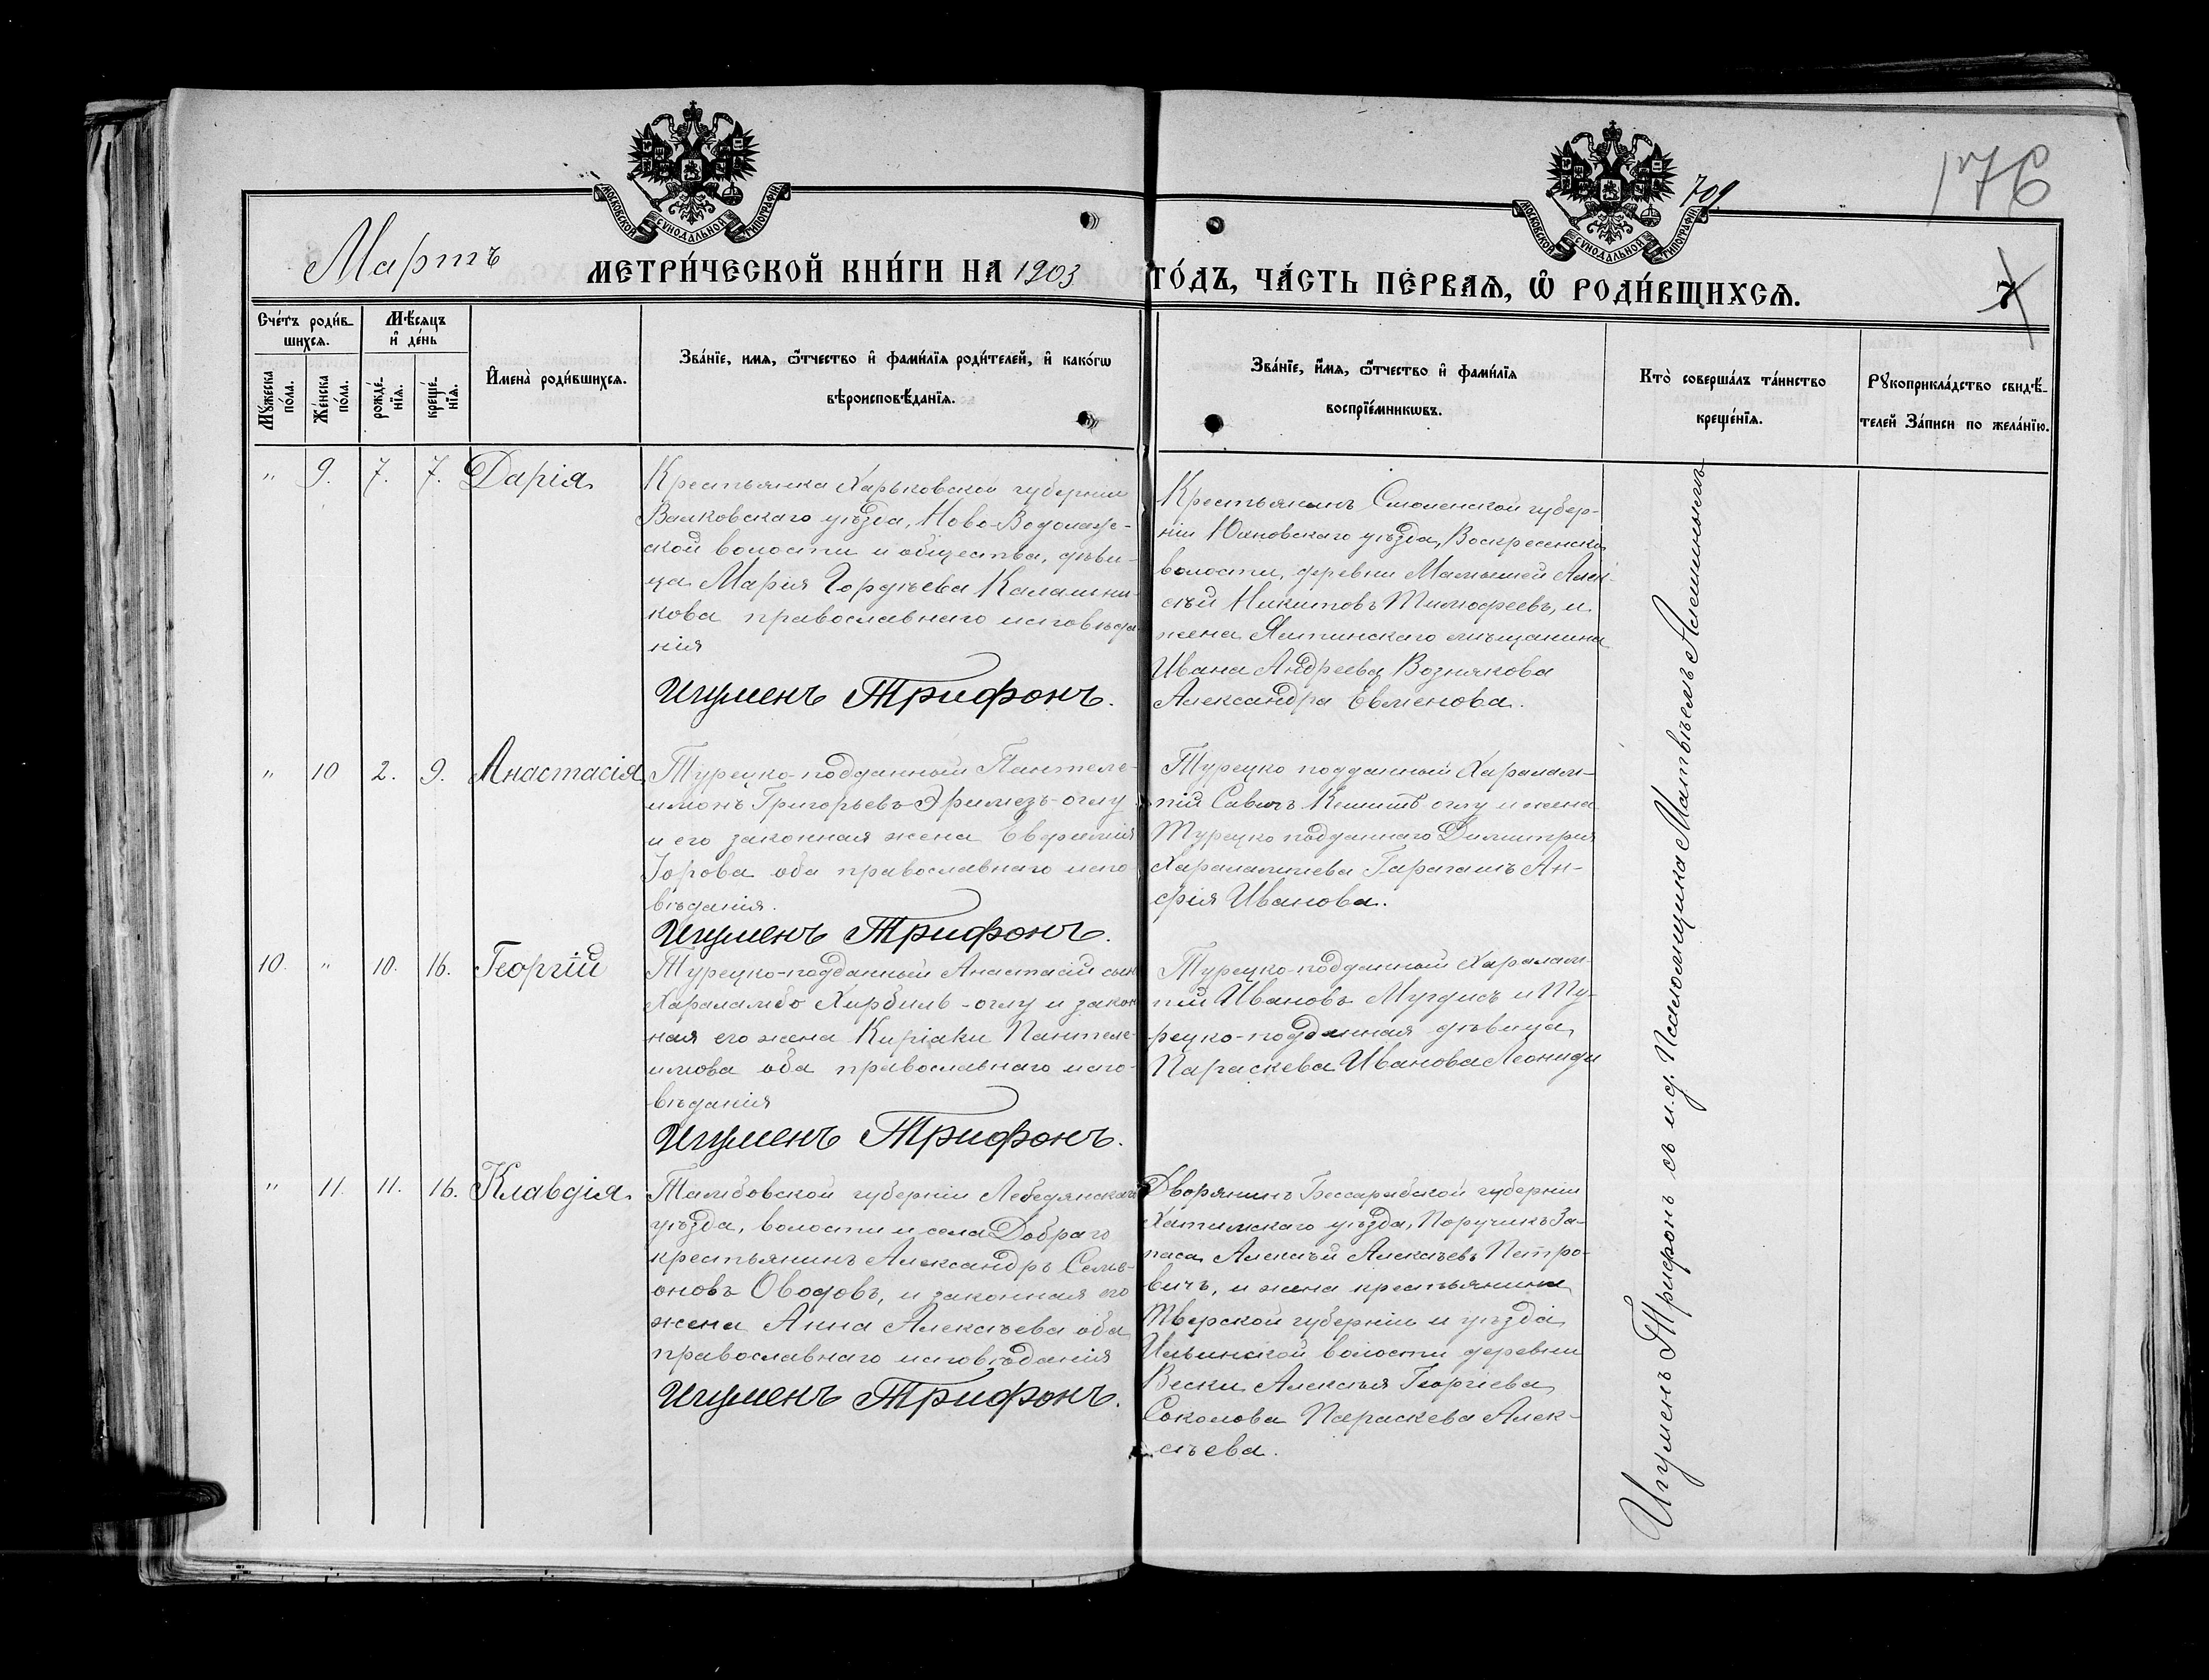 176
709
МОСКОВСКОЙ СУНОДАЛЬНОЙ ТИПОГРАФІИ
МОСКОВСКОЙ СУНОДАЛЬНОЙ ТИПОГРАФІИ
Мартъ
МЕТРИ́ЧЕСКОЙ КНИ́ГИ НА 1903 ГО́ДЪ, ЧА́СТЬ ПЕ́РВАѦ, Ѡ҆ РОДИ́ВШИХСѦ.
7
Сче́тъ роди́в-
шихсѧ.
Мѣ́сѧцъ
и҆ де́нь
Мꙋ́жеска
по́ла.
Же́нска
по́ла.
рожде́-
нїѧ.
креще́-
нїѧ.
И҆мена̀ роди́вшихсѧ.
Зва́нїе, имѧ, ѻ҆́тчество и҆ фами́лїѧ роди́телей, и҆ како́гѡ
вѣроисповѣ́данїѧ.
Зва́нїе, и҆́мѧ, ѻ҆́тчество и҆ фами́лїѧ
воспрїе́мникѡвъ.
Кто̀ соверша́лъ та́инство
креще́нїѧ.
Рꙋкоприкла́дство свидѣ́-
телей За́писи по жела́нїю.
" 9. 7. 7. Дарія
Крестьянка Харьковской губерніи
Валковскаго уѣзда, Ново-Водолаж-
ской волости и общества, дѣви-
ца Марія Гордѣева Калашни-
кова православнаго исповѣда-
нія
Игуменъ Трифонъ.
Крестьянинъ Смоленской губер-
ніи Юхновскаго уѣзда, Воскресенской
волости, деревни Алек-
сѣй Никитовъ Тимофеевъ, и
жена Ялтинскаго мѣщанина
Ивана Андреева Возникова
Александра Евменова.
" 10 2. 9. Анастасія
Турецко-подданный Пантеле-
имонъ Григорьевъ Эримезъ-оглу
и его законная жена Евфимія
Юрова оба православнаго испо
вѣданія.
Игуменъ Трифонъ.
Турецко подданный Харалам-
пій Савичъ оглу и жена
Турецко подданнаго Димитрія
Харалампіева Ан-
фія Иванова.
10. " 10. 16. Георгій
Турецко-подданный Анастасій сынъ
Хараламбо Хирбиль-оглу и закон
ная его жена Киріаки Пантеле-
имова оба православнаго испо-
вѣданія
Игуменъ Трифонъ.
Турецко-подданный Харалам-
пій Ивановъ Мугдисъ и Ту-
рецко-подданная дѣвица
Параскева Иванова Леониди
" 11. 11. 16. Клавдія
Тамбовской губерніи Лебедянскаго
уѣзда, волости и села Добраго
крестьянинъ Александръ Семе-
оновъ Оводовъ, и законная его
жена Анна Алексѣева оба
православнаго исповѣданія
Игуменъ Трифонъ.
Дворянинъ Бессарабской губерніи
Хотимскаго уѣзда, Поручикъ За-
паса Алексѣй Алексѣевъ Петро-
вичъ, и жена крестьянина
Тверской губерніи и уѣзда
Ильинской волости деревни
Вески Алексѣя Георгіева
Соколова Параскева Алек-
сѣева.
Игуменъ Трифонъ съ и.д. Псаломщика Матвѣемъ Алешинымъ